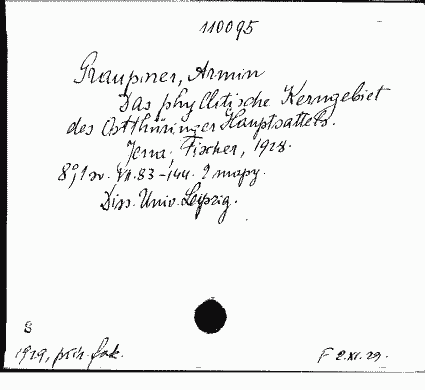 110095
Graupner, Armin
Das phyllitische Kerngebiet
des Ostthüringer Hauptsattels.
Jena, Fischer, 1928.
8°, 1 sv. VII. 83-144. 2 mapy.
Diss. Univ. Leipzig.
S
1929, přír. fak. F 2.XI.29.